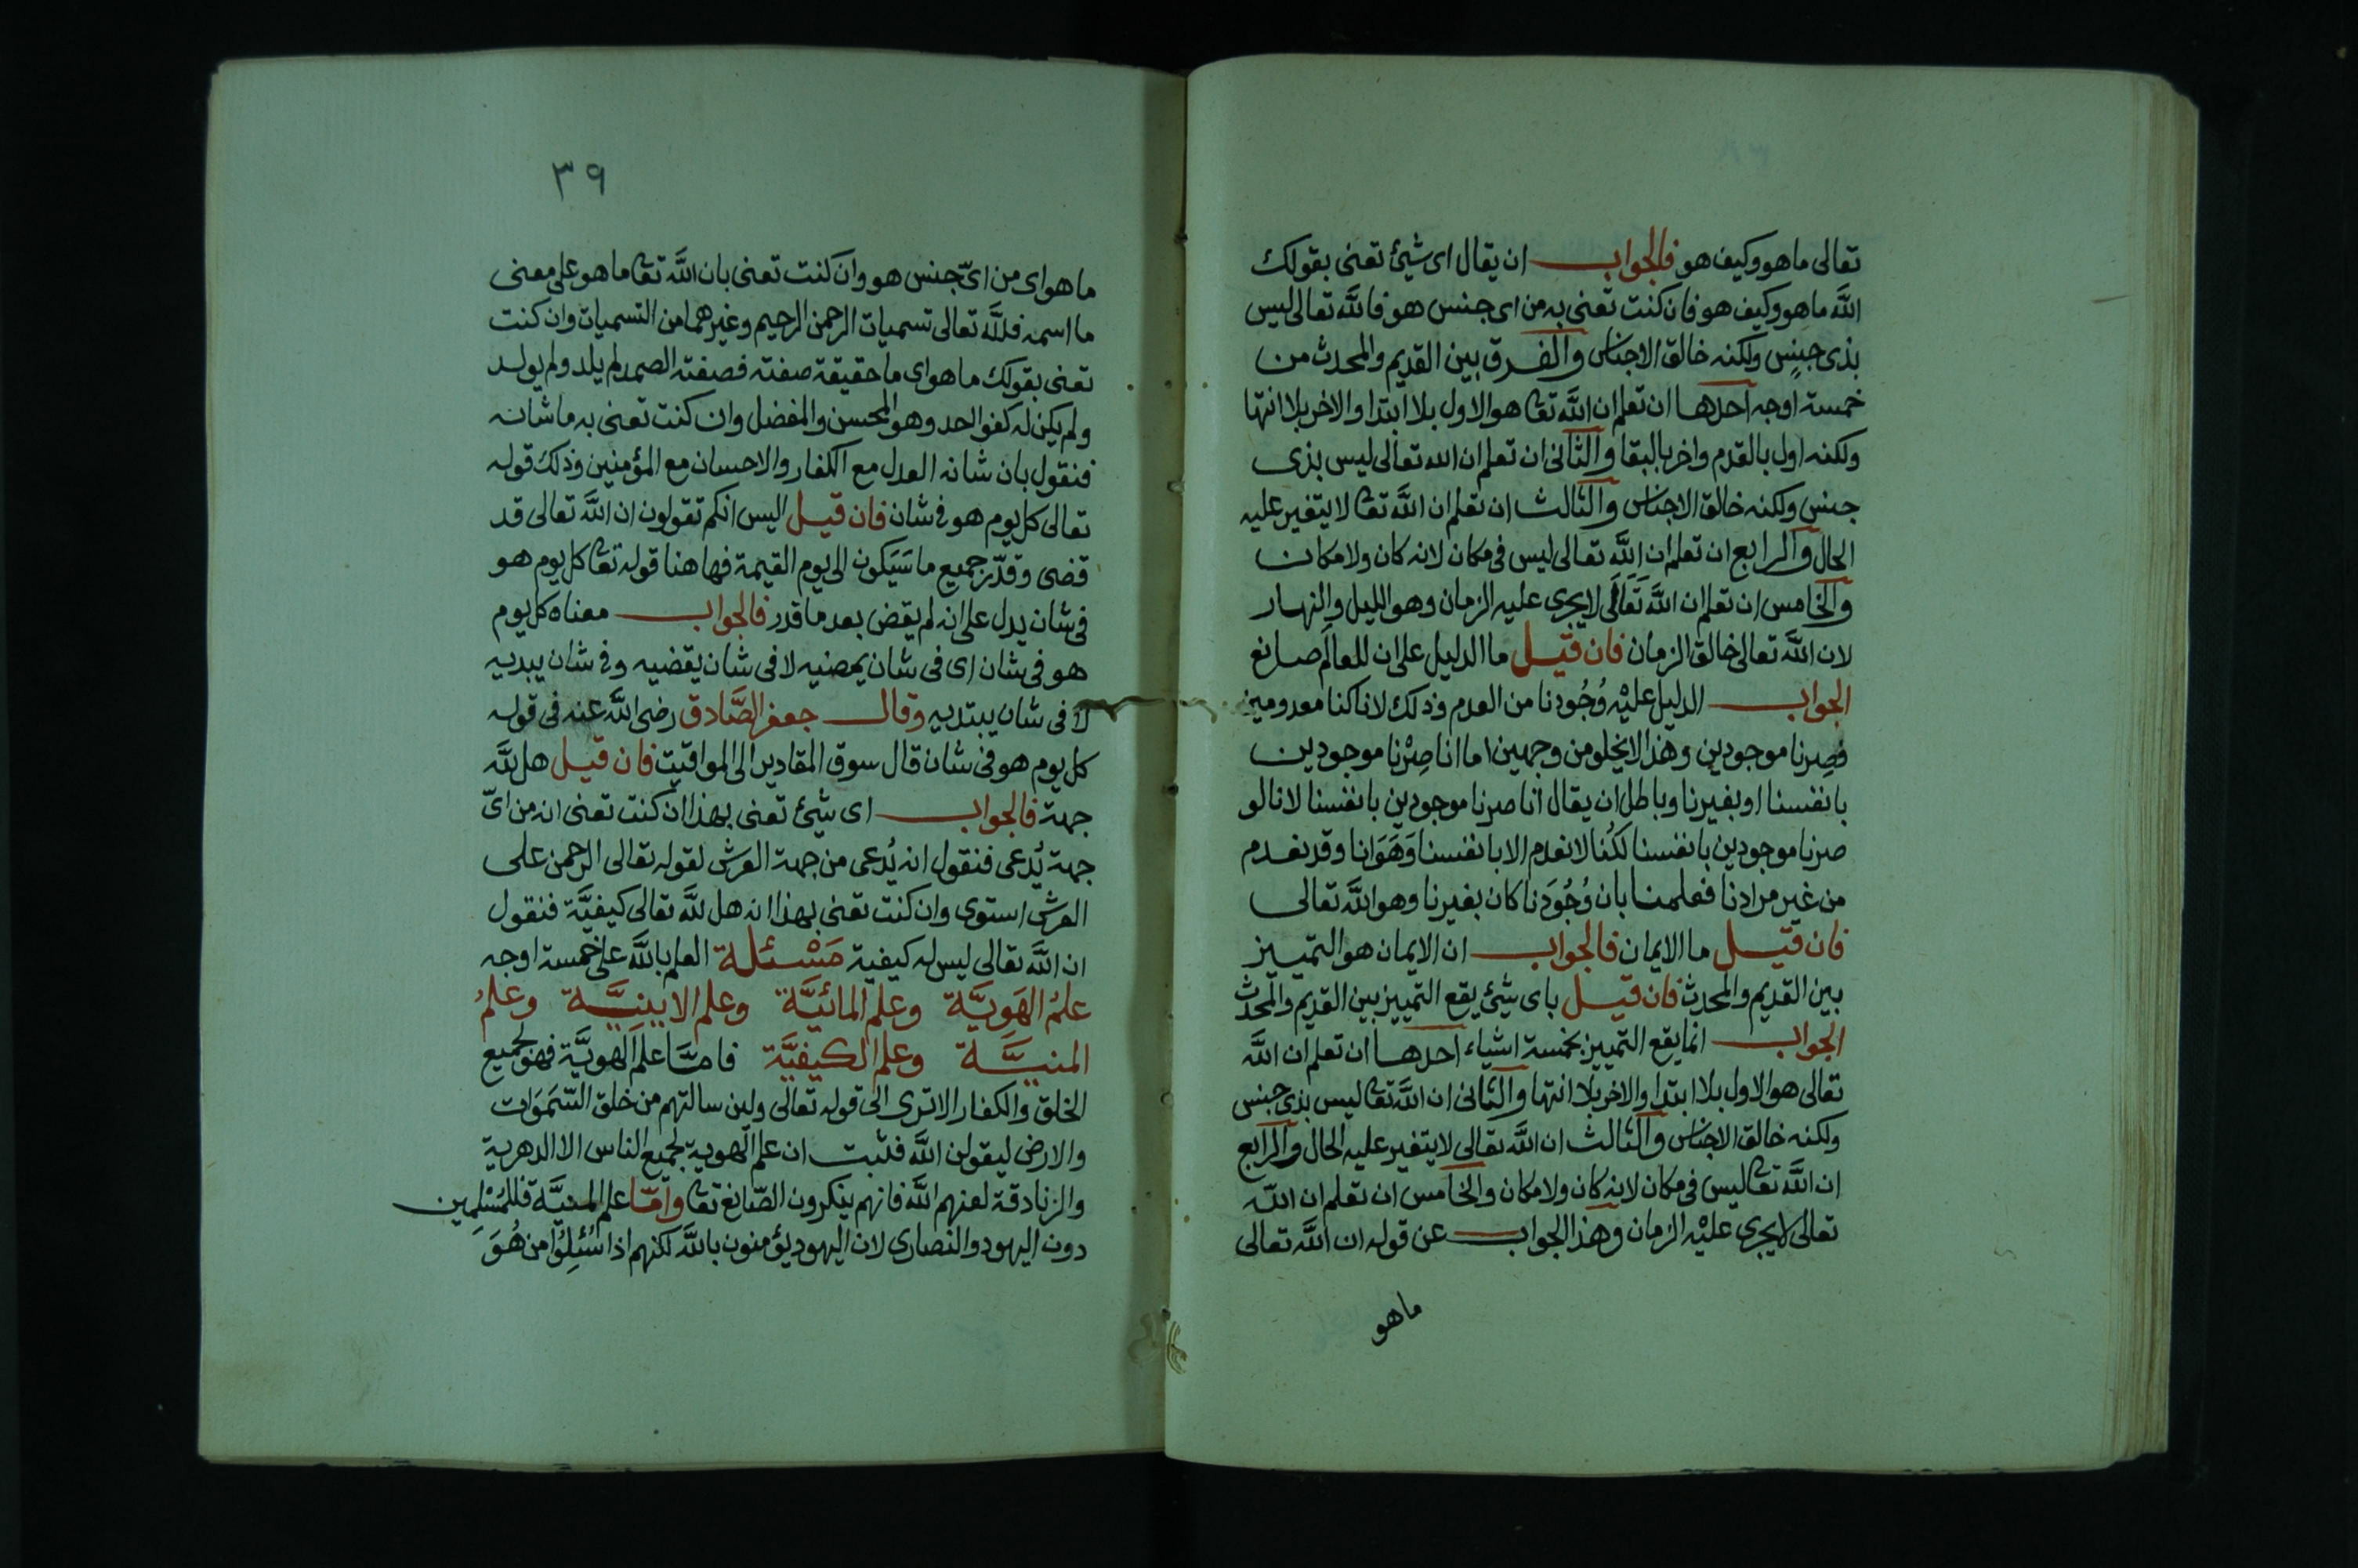 تعالى ما هو وكيف هو فالجواب ان يقال اى شيئ تعنى بقولك
الله ما هو وكيف هو فان كنت تعنى به من اى جنس هو فالله تعالى ليس
بذى جنسٍ ولكنه خالق الاجناس والفرق بين القديم والمحدث من
خمسة اوجه احدها ان تعلم ان الله تعا هو الاول بلا ابتدا والاخر بلا انتها
ولكنه اول بالقدم واخر بالبقا والثانى ان تعلم ان الله تعالى ليس بذى
جنس ولكنه خالق الاجناس والثالث ان تعلم ان الله تعا لا يتغير عليه
الحال والرابع ان تعلم ان الله تعالى ليس فى مكان لانه كان ولا مكان
والخامس ان تعلم ان الله تَعَالَى لا يجرى عليه الزمان وهو الليل والنهار
لان الله تعالى خالق الزمان فان قيل ما الدليل على ان للعالَم صانع
الجواب الدليل عليْه وُجُودنا من العدم وذلك لانا كنا معدومين
فصِرنا موجودين وهذا لا يخلو من وجهين اما انا صِرْنا موجودين
بانفسنا او بغيرنا وباطل ان يقال انا صرنا موجودين بانفسنا لانا لو
صرنا موجودين بانفسنا لكُنا لا نعدم الا بانفسنا وَهَوَانا وقد نعدم
من غير مرادنا فعلمنا بان وُجُودَنا كان بغيرنا وهو الله تعالى
فان قيل ما الايمان فالجواب ان الايمان هو التمييز
بين القديم والمحدث فان قيل باى شيئ يقع التمييز بين القديم والمحدث
الجواب انما يقع التمييز بخمسة اشياء احدها ان تعلم ان الله
تعالى هو الاول بلا ابتدا والاخر بلا انتها والثانى ان الله تعا ليس بذى جنس
ولكنه خالق الاجناس والثالث ان الله تعالى لا يتغير عليه الحال والرابع
ان الله تعا ليس فى مكان لانه كان ولا مكان والخامس ان تعلم ان الله
تعالى لا يجرى عليْه الزمان وهذا الجواب عن قوله ان الله تعالى
ما هو
٣٩
ما هو اى من اىّ جنس هو وان كنت تعنى بان الله تعا ما هو على معنى
ما اسمه فلله تعالى تسميات الرحمن الرحيم وغيرهما من التسميات وان كنت
تعنى بقولك ما هو اى ما حقيقة صفته فصفته الصمد لم يلد ولم يولد
ولم يكن له كفوا احد وهو المحسن والمفضل وان كنت تعنى به ما شانه
فنقول بان شانه العدل مع الكفار والاحسان مع المؤمنين وذلك قوله
تعالى كل يوم هو فى شان فان قيل اليس انكم تقولون ان الله تعالى قد
قضى وقدّر جميع ما سَيَكون الى يوم القيمة فها هنا قوله تعا كل يوم هو
فى شان يدل على انه لم يقض بعد ما قدر فالجواب معناه كل يوم
هو فى شان اى فى شان يمضيه لا فى شان يقضيه وفى شان يبديه
لا فى شان يبتديه وقال جعفر الصَّادق رضى الله عنه فى قوله
كل يوم هو فى شان قال سوق المقادير الى المواقيت فان قيل هل لله
جهة فالجواب اى شيئ تعنى بهذا ان كنت تعنى انه من اىّ
جهة يُدعى فنقول انه يُدعى من جهة العرش لقوله تعالى الرحمن على
العرش استوى وان كنت تعنى بهذا انه هل لله تعالى كيفيَّة فنقول
ان الله تعالى ليس له كيفية مَسْئلة العلم بالله على خمسة اوجه
علمُ الهَويَّة وعلم المائيَّة وعلم الاينيَّة وعلمُ
المنيَّة وعلم الكيفيَّة فامّا علم الهويَّة فهو لجميع
الخلق والكفار الا ترى الى قوله تعالى ولين سالتهم من خلق السَّمَوَات
والارض ليقولن الله فثبت ان علم الهوية لجميع الناس الا الدهرية
والزنادقة لعنهم الله فانهم ينكرون الصّانع تعا وامّا علم المنيَّة فللمُسْلِمِين
دون اليهود والنصارى لان اليهود يؤمنون بالله لكنهم اذا سُئِلُوا من هُوَ